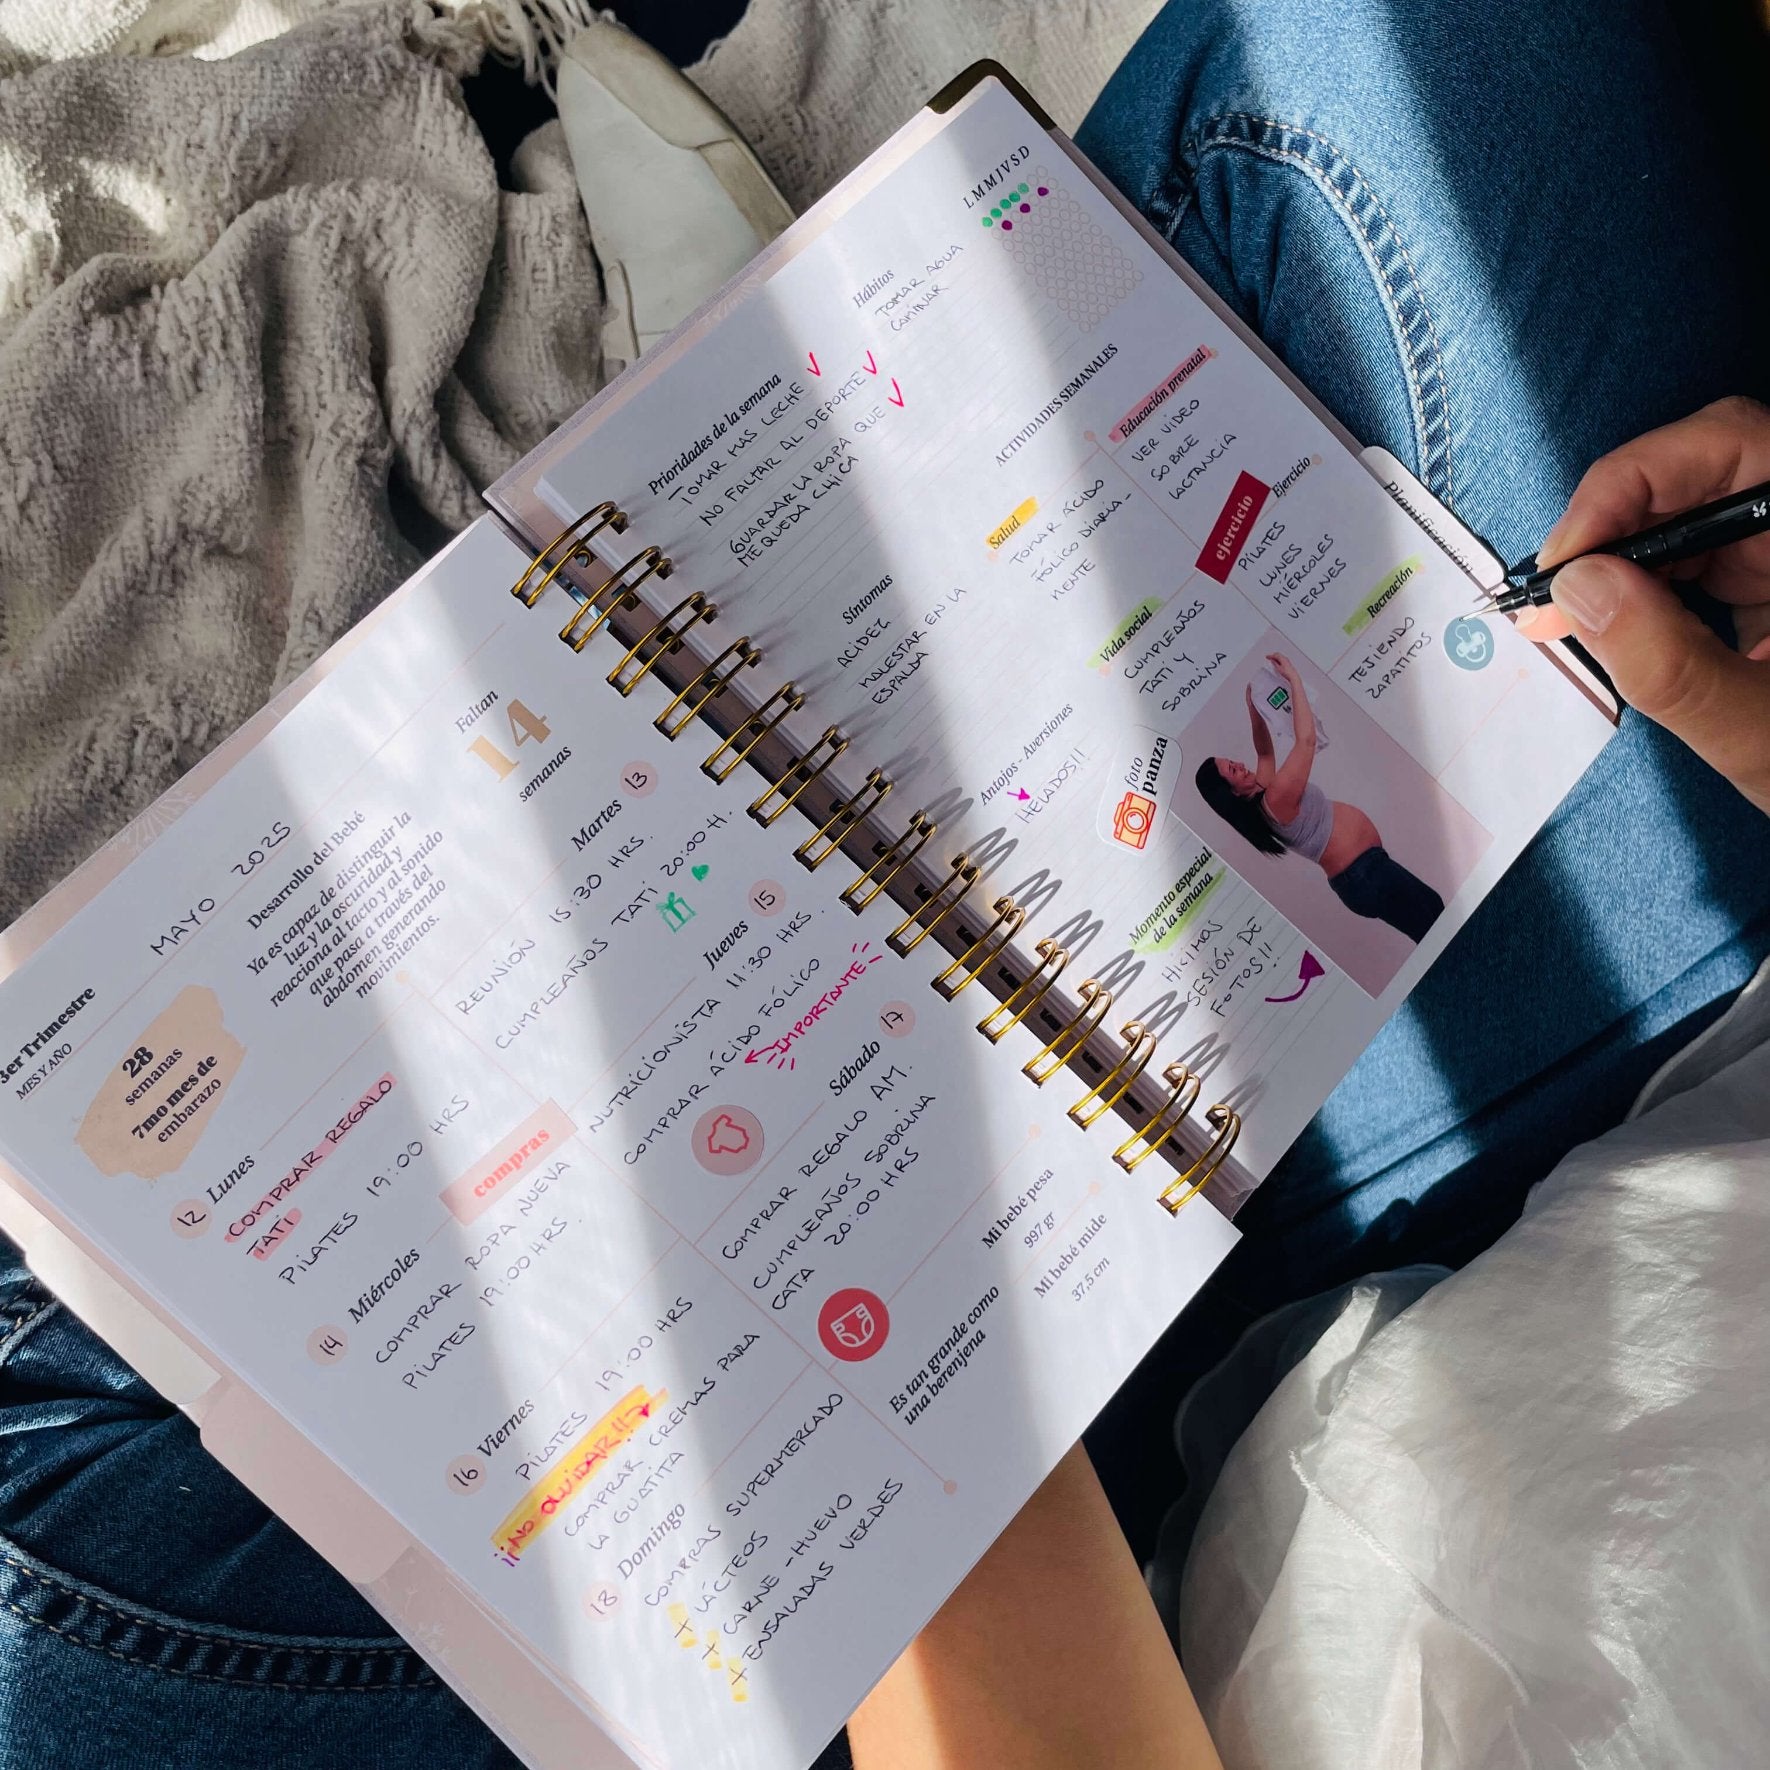 3er Trimestre
MES Y AÑO
MAYO 2025
28
semanas
7mo mes de
embarazo
Desarrollo del Bebé
Ya es capaz de distinguir la
luz y la oscuridad y
reacciona al tacto y al sonido
que pasa a través del
abdomen generando
movimientos.
Faltan
14
semanas
12 Lunes
COMPRAR REGALO
TATI
PILATES 19:00 HRS
Martes 13
REUNIÓN 15:30 HRS.
CUMPLEAÑOS TATI 20:00 H.
14 Miércoles
compras
COMPRAR ROPA NUEVA
PILATES 19:00 HRS.
Jueves 15
NUTRICIONISTA 11:30 HRS.
COMPRAR ÁCIDO FÓLICO
IMPORTANTE
16 Viernes
PILATES 19:00 HRS
¡¡NO OLVIDAR!!
COMPRAR CREMAS PARA
LA GUATITA
Sábado 17
COMPRAR REGALO AM.
CUMPLEAÑOS SOBRINA
CATA 20:00 HRS
18 Domingo
COMPRAS SUPERMERCADO
+ LÁCTEOS
+ CARNE - HUEVO
+ ENSALADAS VERDES
Mi bebé pesa
997 gr
Mi bebé mide
37.5 cm
Es tan grande como
una berenjena
Prioridades de la semana
TOMAR MAS LECHE
NO FALTAR AL DEPORTE
GUARDAR LA ROPA QUE
ME QUEDA CHICA
Hábitos
L M M J V S D
TOMAR AGUA
CAMINAR
Síntomas
ACIDEZ
MALESTAR EN LA
ESPALDA
Antojos - Aversiones
¡HELADOS!!
ACTIVIDADES SEMANALES
Salud
TOMAR ÁCIDO
FÓLICO DIARIA-
MENTE
Educación prenatal
VER VIDEO
SOBRE
LACTANCIA
Vida social
CUMPLEAÑOS
TATI Y
SOBRINA
ejercicio
Ejercicio
PILATES
LUNES
MIÉRCOLES
VIERNES
Recreación
TEJIENDO
ZAPATITOS
foto
panza
Momento especial
de la semana
HICIMOS
SESIÓN DE
FOTOS!!
Planificación